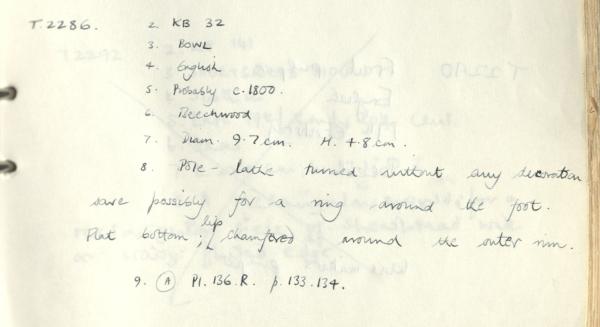 T.2286. 2. KB 32
3. BOWL
4. English
5. Probably c.1800.
6. Beechwood
7. Diam. 9.7cm. H. 4.8cm.
8. Pole-lathe turned without any decoration
save possibly for a ring around the foot.
Flat bottom; lip chamfered around the outer rim.
9. (A) Pl. 136.R. p.133.134.